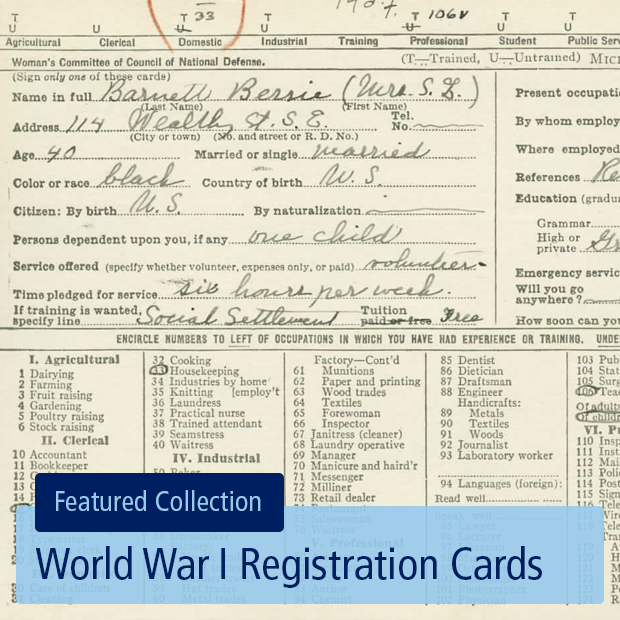 T 33 T 106v
U U U U U U U
Agricultural Clerical Domestic Industrial Training Professional Student Public
Woman's Committee of Council of National Defense. (T—Trained, U—Untrained)
(Sign only one of these cards)
Name in full Barnett Bessie (Mrs. S. L.)
(Last Name) (First Name)
Address 114 Wealthy St. S.E. Tel. No.
(City or town) (No. and street or R. D. No.)
Age 40 Married or single married
Color or race black Country of birth U.S.
Citizen: By birth U.S. By naturalization
Persons dependent upon you, if any one child
Service offered (specify whether volunteer, expenses only, or paid) volunteer
Time pledged for service six hours per week.
If training is wanted, specify line Social Settlement Tuition paid or free Free
Present
By whom
Where employed
References
Education
Grammar
High or private
Emergency
Will you go anywhere?
How soon can
ENCIRCLE NUMBERS TO LEFT OF OCCUPATIONS IN WHICH YOU HAVE HAD EXPERIENCE OR TRAINING.
I. Agricultural
1 Dairying
2 Farming
3 Fruit raising
4 Gardening
5 Poultry raising
6 Stock raising
II. Clerical
10 Accountant
11 Bookkeeper
32 Cooking
33 Housekeeping
34 Industries by home
35 Knitting [employ't
36 Laundress
37 Practical nurse
38 Trained attendant
39 Seamstress
40 Waitress
IV. Industrial
50 Baker
Factory—Cont'd
61 Munitions
62 Paper and printing
63 Wood trades
64 Textiles
65 Forewoman
66 Inspector
67 Janitress (cleaner)
68 Laundry operative
69 Manager
70 Manicure and haird'r
71 Messenger
72 Milliner
73 Retail dealer
85 Dentist
86 Dietician
87 Draftsman
88 Engineer
Handicrafts:
89 Metals
90 Textiles
91 Woods
92 Journalist
93 Laboratory worker
94 Languages (foreign):
Read well
103
104
105
106
Of
Of
VI.
110
111
112
113
114
115
116
Featured Collection
World War I Registration Cards